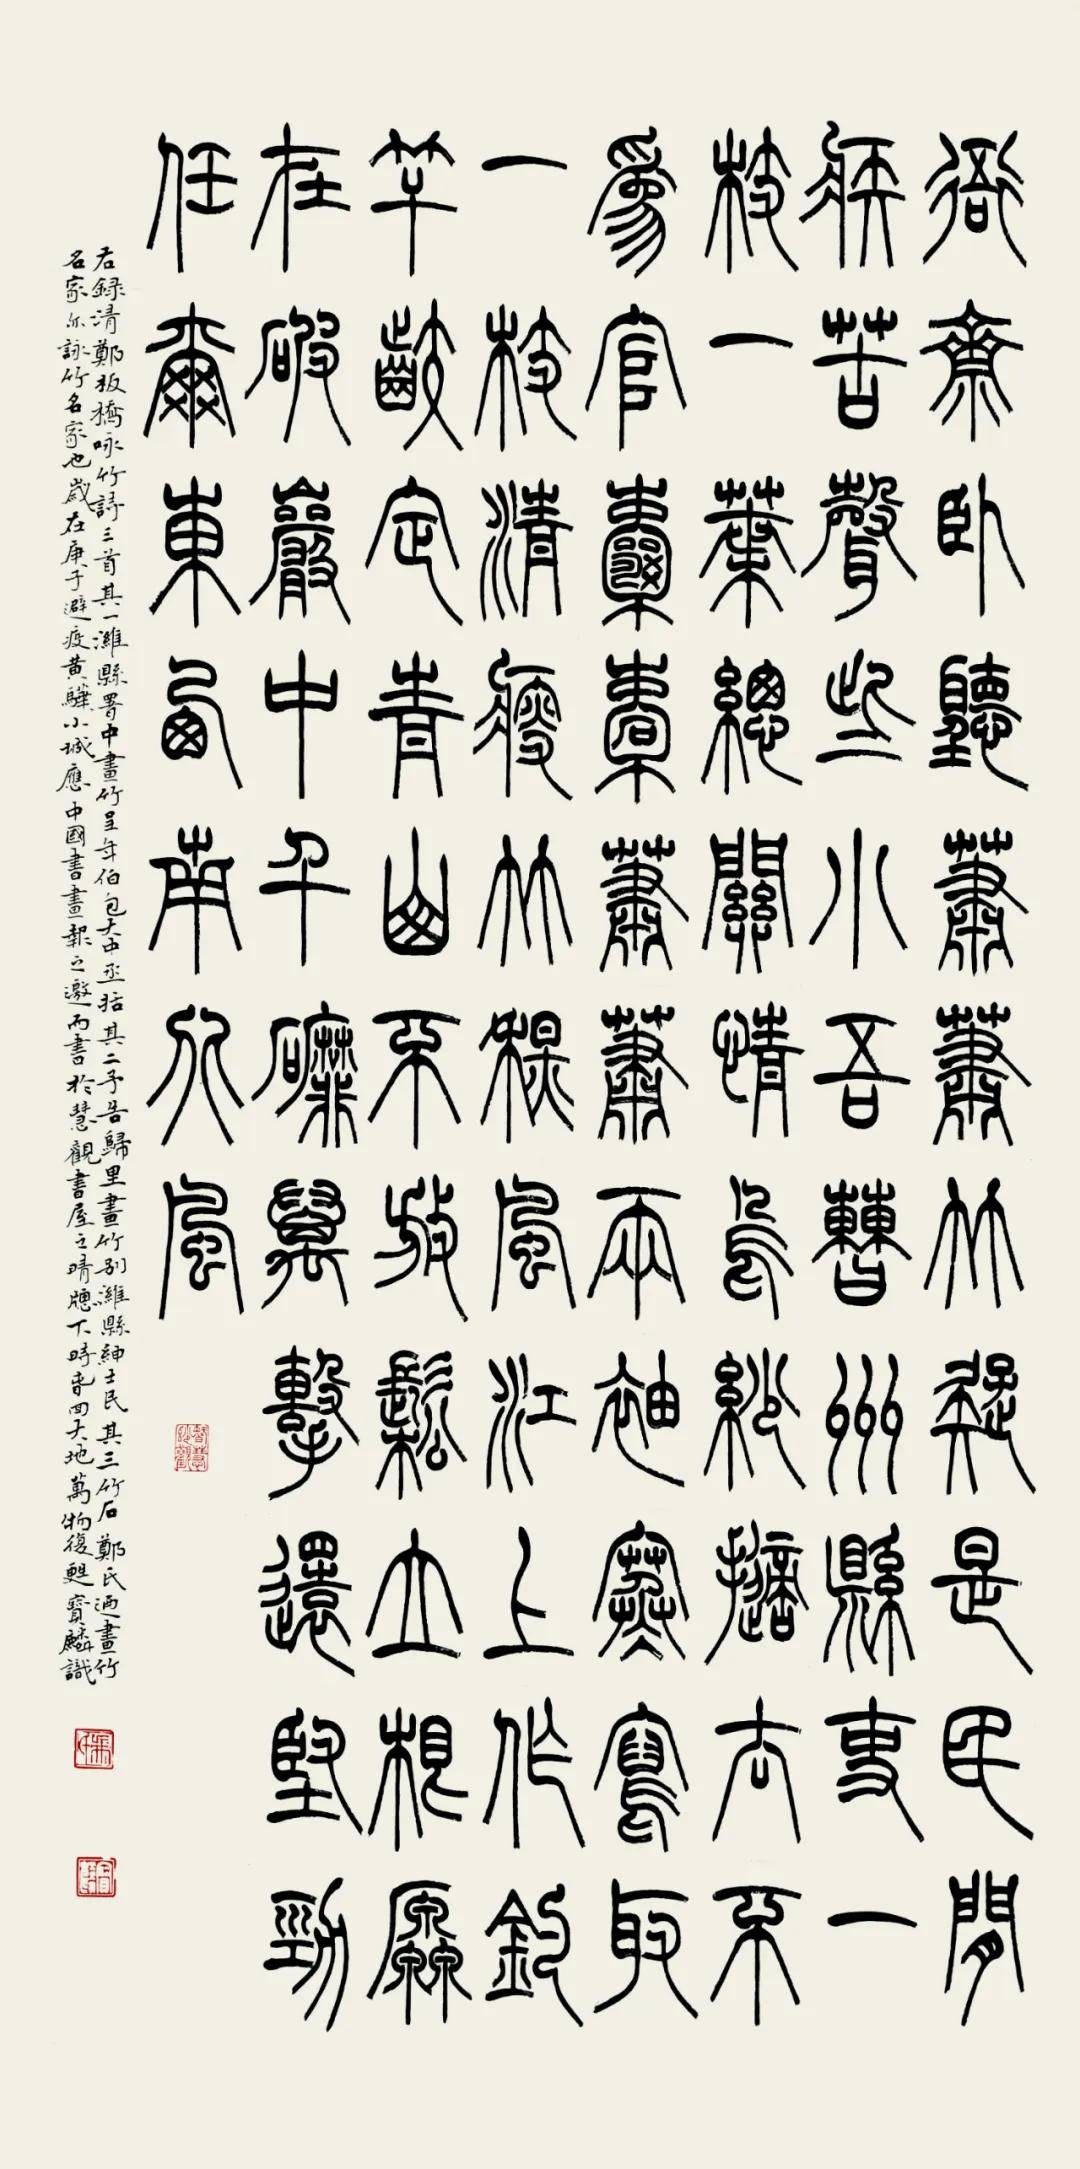 衙齋臥聽蕭蕭竹疑是民間
疾苦聲些小吾曹州縣吏一
枝一葉總關情烏紗擲去不
爲官囊橐蕭蕭兩袖寒寫取
一枝清瘦竹秋風江上作釣
竿齩定青山不放鬆立根原
在破巖中千磨萬擊還堅勁
任爾東西南北風
右録清鄭板橋咏竹詩三首其一濰縣署中畫竹呈年伯包大中丞括其二予告歸里畫竹别濰縣紳士民其三竹石鄭氏迺畫竹
名家亦詠竹名家也歲在庚子避疫黄驊小城應中國書畫報之邀而書於慧觀書屋之晴牕下時春回大地萬物復甦寶麟識